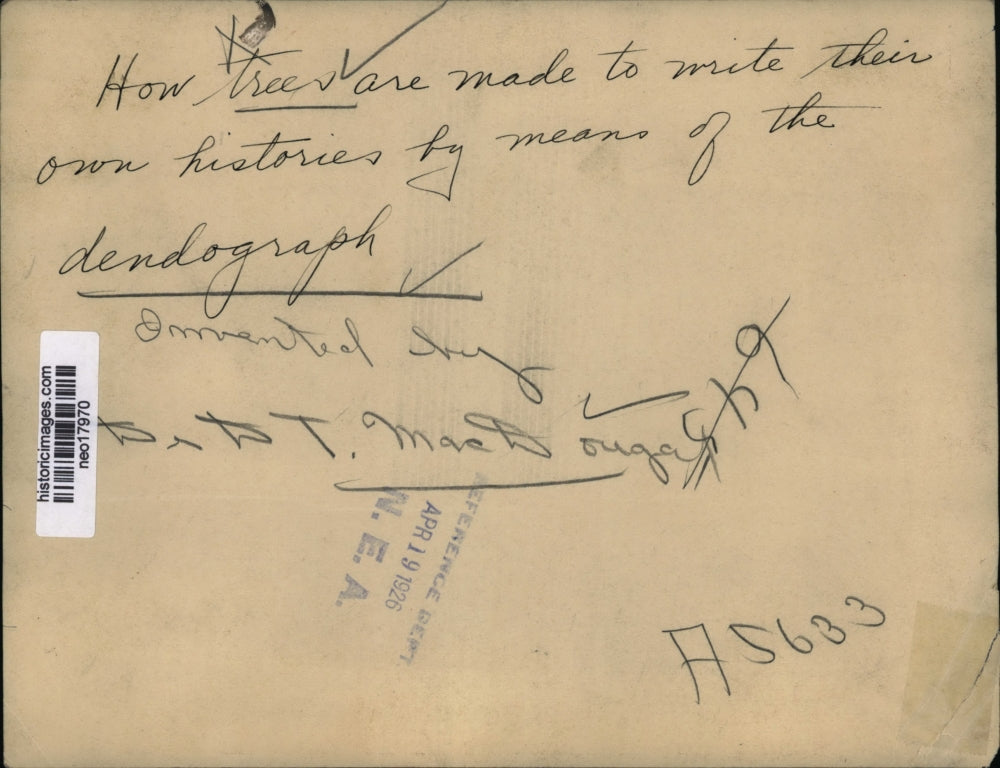 How trees are made to write their
own histories by means of the
dendograph
Invented by
D. T. MacDougal
historicimages.com
neo17970
REFERENCE DEPT
APR 19 1926
N. E. A.
A5633